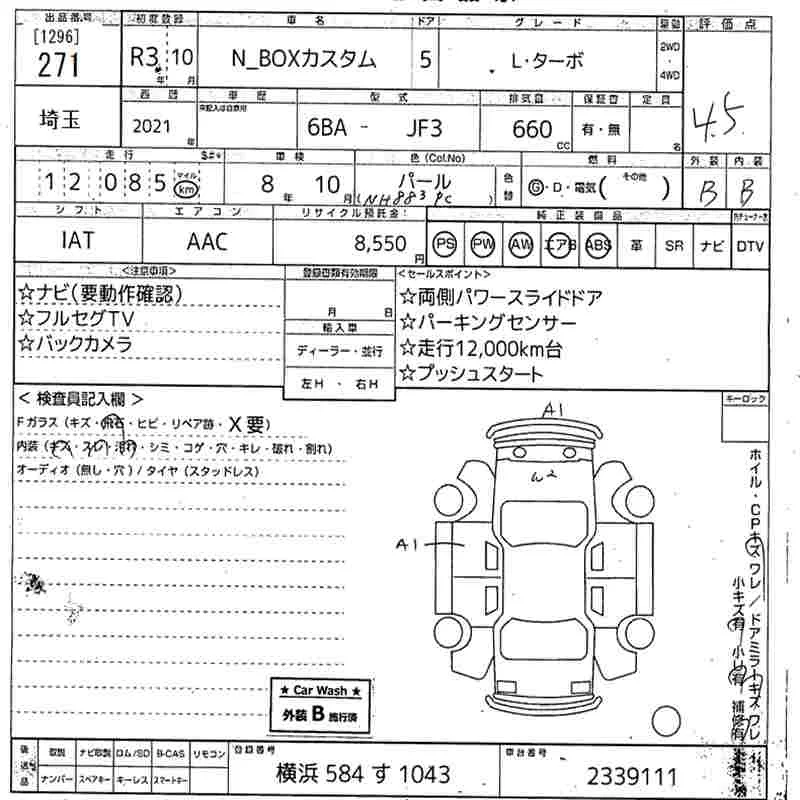 出品番号 初度登録 車名 ドア グレード 駆動 評価点
[1296]
271 R3年 10月 N_BOXカスタム 5 L・ターボ 2WD・4WD
埼玉 西暦 車歴 型式 排気量 保証書 定員 4.5
2021年 未記入は自家用 6BA - JF3 660CC 有・無 名
走行 車検 色(Col.No) 燃料 外装 内装
12085 マイル km 8年 10月 パール 色替 G・D・電気( その他 ) B B
(NH883PC)
シフト エアコン リサイクル預託金 純正装備品
IAT AAC 8,550円 PS PW AW エアB ABS 革 SR ナビ DTV
<注意事項> 登録書類有効期限 <セールスポイント>
☆ナビ(要動作確認) 月 日 ☆両側パワースライドドア
☆フルセグTV 輸入車 ☆パーキングセンサー
☆バックカメラ ディーラー・並行 ☆走行12,000km台
左H・右H ☆プッシュスタート
<検査員記入欄> キーロック
Fガラス(キズ・飛石・ヒビ・リペア跡・X要)
内装(キズ・スレ・汚れ・シミ・コゲ・穴・キレ・破れ・割れ)
オーディオ(無し・穴)/タイヤ(スタッドレス)
A1
W2
A1
ホイル・CPキズワレ/ドアミラーキズワレ
小キズ有 小凹有 補修有
★ Car Wash ★
外装 B 施行済
後送品 取説 ナビ取説 ロム/SD B-CAS リモコン 登録番号 車台番号
ナンバー スペアキー キーレス スマートキー 横浜 584 す 1043 2339111